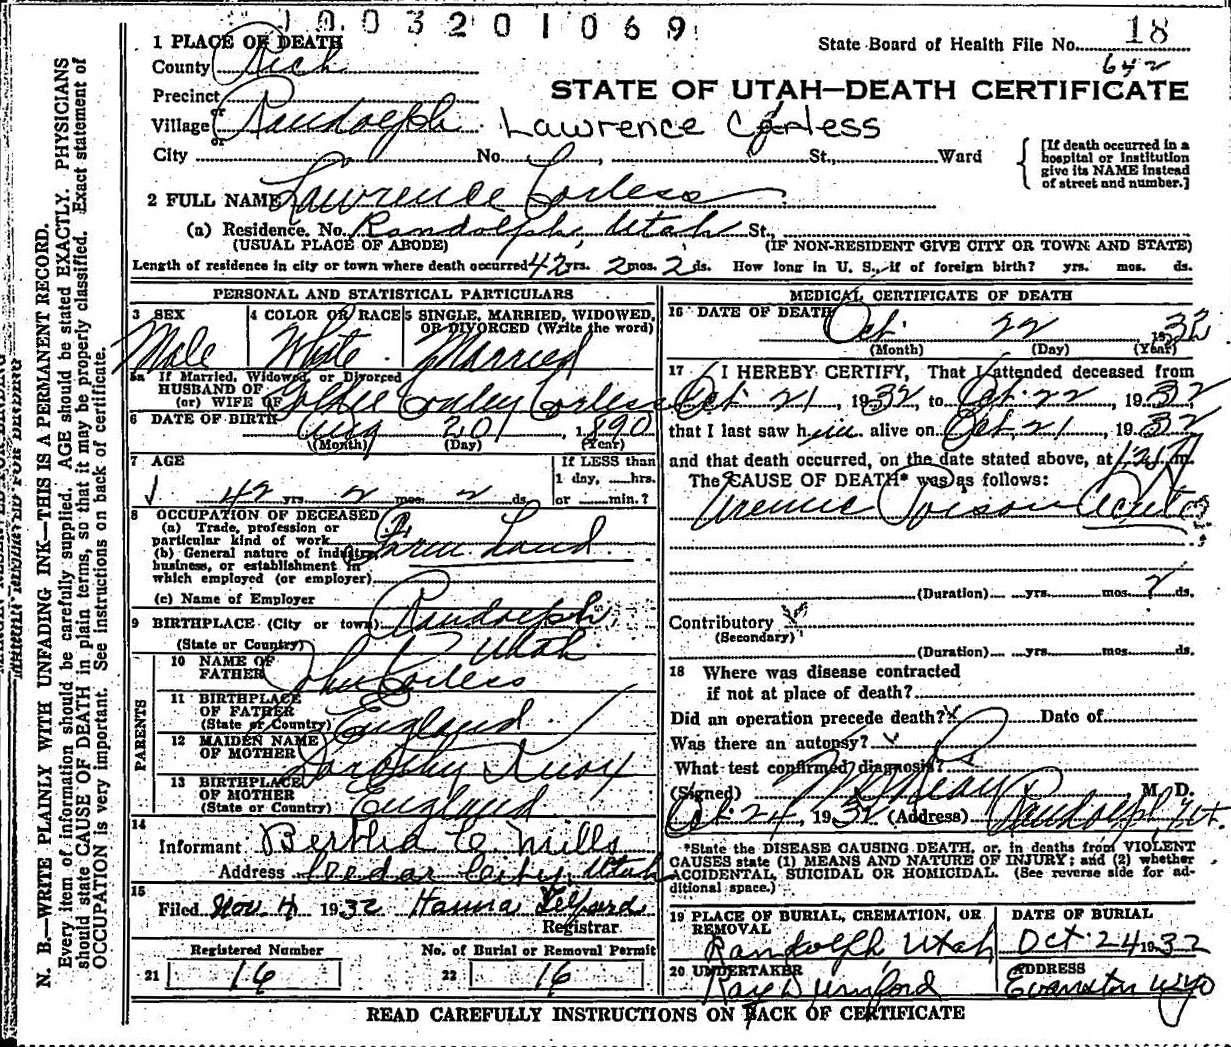 1003201069
State Board of Health File No. 18
642
1 PLACE OF DEATH
County Rich
STATE OF UTAH—DEATH CERTIFICATE
Precinct
or
Village Randolph Lawrence Corless
or
City No. St., Ward
[If death occurred in a hospital or institution give its NAME instead of street and number.]
2 FULL NAME Lawrence Corless
(a) Residence. No. Randolph, Utah St.,
(USUAL PLACE OF ABODE) (IF NON-RESIDENT GIVE CITY OR TOWN AND STATE)
Length of residence in city or town where death occurred 42 yrs. 2 mos. 2 ds. How long in U. S., if of foreign birth? yrs. mos. ds.
PERSONAL AND STATISTICAL PARTICULARS
3 SEX 4 COLOR OR RACE 5 SINGLE, MARRIED, WIDOWED, OR DIVORCED (Write the word)
Male White Married
5a If Married, Widowed, or Divorced
HUSBAND OF
(or) WIFE OF Goldie Corless
6 DATE OF BIRTH Aug 20 1890
(Month) (Day) (Year)
7 AGE If LESS than
1 day, hrs.
42 yrs. 2 mos. 2 ds. or min.?
8 OCCUPATION OF DECEASED
(a) Trade, profession or
particular kind of work
(b) General nature of industry, Farm Land
business, or establishment in
which employed (or employer)
(c) Name of Employer
9 BIRTHPLACE (City or town) Randolph,
(State or Country) Utah
PARENTS
10 NAME OF
FATHER John Corless
11 BIRTHPLACE
OF FATHER
(State or Country) England
12 MAIDEN NAME
OF MOTHER Dorothy Knox
13 BIRTHPLACE
OF MOTHER
(State or Country) England
14
Informant Bertha C. Mills
Address Cedar City, Utah
15
Filed Nov. 4 1932 Hanna
Registrar
Registered Number No. of Burial or Removal Permit
21 16 22 16
MEDICAL CERTIFICATE OF DEATH
16 DATE OF DEATH Oct. 22 1932
(Month) (Day) (Year)
17 I HEREBY CERTIFY, That I attended deceased from
Oct. 21, 1932, to Oct. 22, 1932
that I last saw him alive on Oct. 21, 1932
and that death occurred, on the date stated above, at m.
The CAUSE OF DEATH* was as follows:
Uremic Poison Acute
(Duration) yrs. mos. 2 ds.
Contributory
(Secondary)
(Duration) yrs. mos. ds.
18 Where was disease contracted
if not at place of death?
Did an operation precede death? x Date of
Was there an autopsy?
What test confirmed diagnosis?
(Signed) , M. D.
Oct. 24, 1932 (Address) Randolph, Ut.
*State the DISEASE CAUSING DEATH, or, in deaths from VIOLENT
CAUSES state (1) MEANS AND NATURE OF INJURY; and (2) whether
ACCIDENTAL, SUICIDAL OR HOMICIDAL. (See reverse side for ad-
ditional space.)
19 PLACE OF BURIAL, CREMATION, OR REMOVAL DATE OF BURIAL
Randolph, Utah Oct. 24 1932
20 UNDERTAKER ADDRESS
Ray Dunford Evanston Wyo
READ CAREFULLY INSTRUCTIONS ON BACK OF CERTIFICATE
N. B.—WRITE PLAINLY WITH UNFADING INK—THIS IS A PERMANENT RECORD.
Every item of information should be carefully supplied. AGE should be stated EXACTLY. PHYSICIANS
should state CAUSE OF DEATH in plain terms, so that it may be properly classified. Exact statement of
OCCUPATION is very important. See instructions on back of certificate.